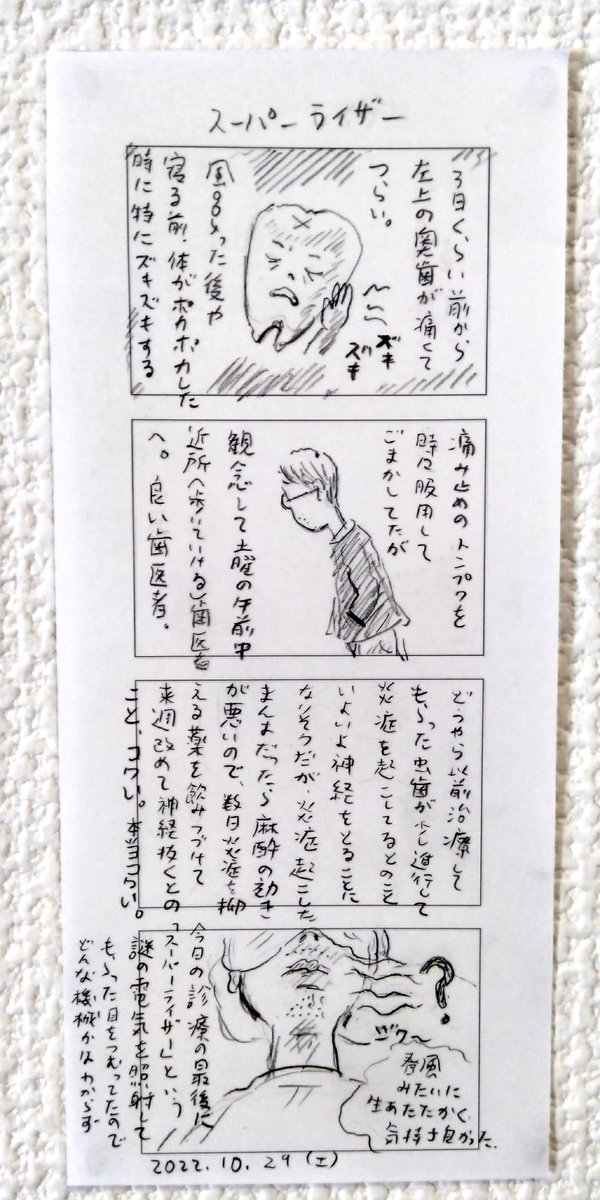 スーパーライザー
3日くらい前から
左上の奥歯が痛くて
つらい。
ズキ
ズキ
風呂入った後や
寝る前、体がポカポカした
時に特にズキズキする
痛み止めのトンプクを
時々服用して
ごまかしてたが
観念して土曜の午前中
近所へ歩いていける歯医者
へ。良い歯医者。
どうやら以前治療して
もらった虫歯が少し進行して
炎症を起こしてるとのこと
いよいよ神経をとることに
なりそうだが、炎症起こした
まんまだったら麻酔の効き
が悪いので、数日炎症を抑
える薬を飲みつづけて
来週改めて神経抜くとの
こと、コワい。本当コワい。
今日の診療の最後に
「スーパーライザー」という
謎の電気を照射して
もらった目をつむってたので
どんな機械かはわからず
?
春風
みたいに
生あたたかく
気持ち良かった。
2022.10.29(土)